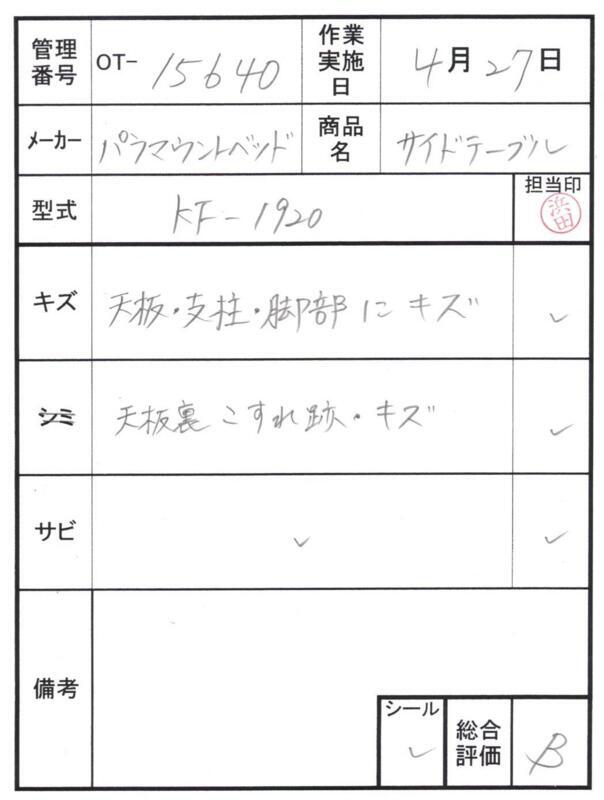 管理番号 OT-15640 作業実施日 4月27日
メーカー パラマウントベッド 商品名 サイドテーブル
型式 KF-1920 担当印 浜田
キズ 天板・支柱・脚部にキズ ✓
シミ 天板裏こすれ跡・キズ ✓
サビ ✓ ✓
備考
シール ✓ 総合評価 B